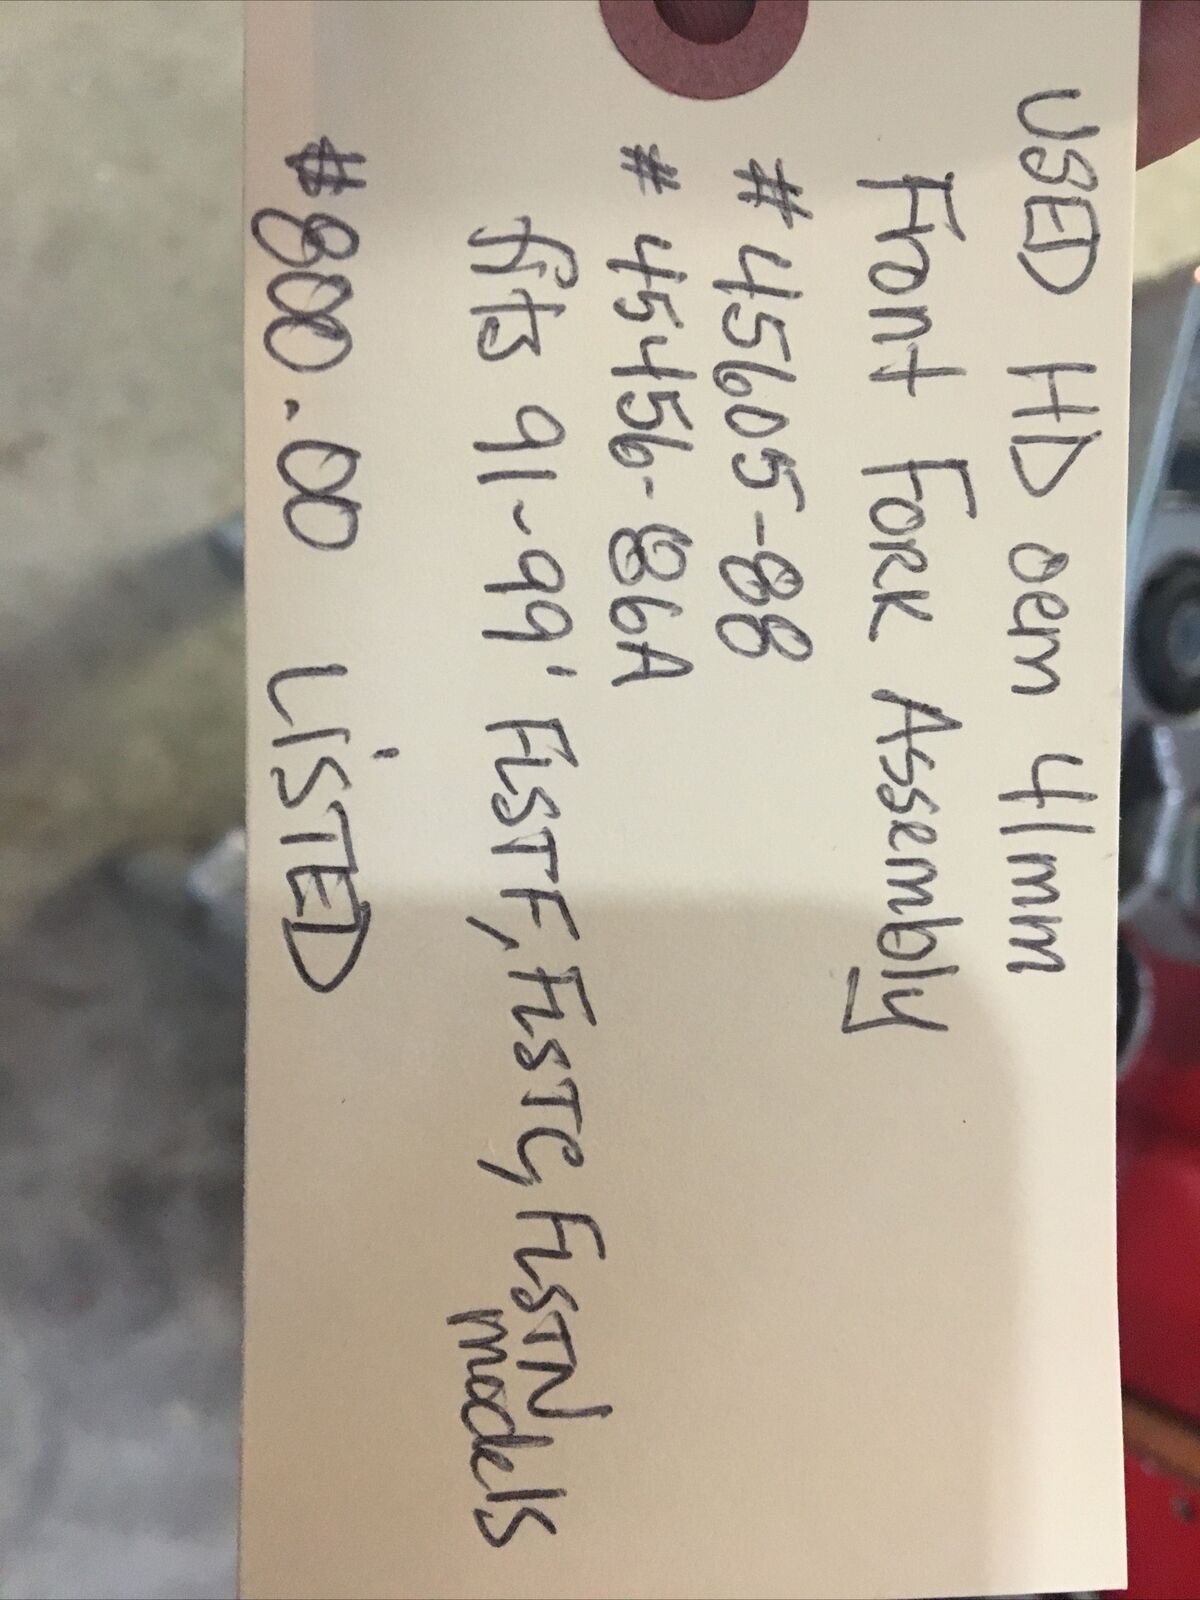 USED HD oem 41mm
Front Fork Assembly
# 45605-88
# 45456-86A
fits 91-99' FLSTF, FLSTC, FLSTN
models
$800.00 LiSTED